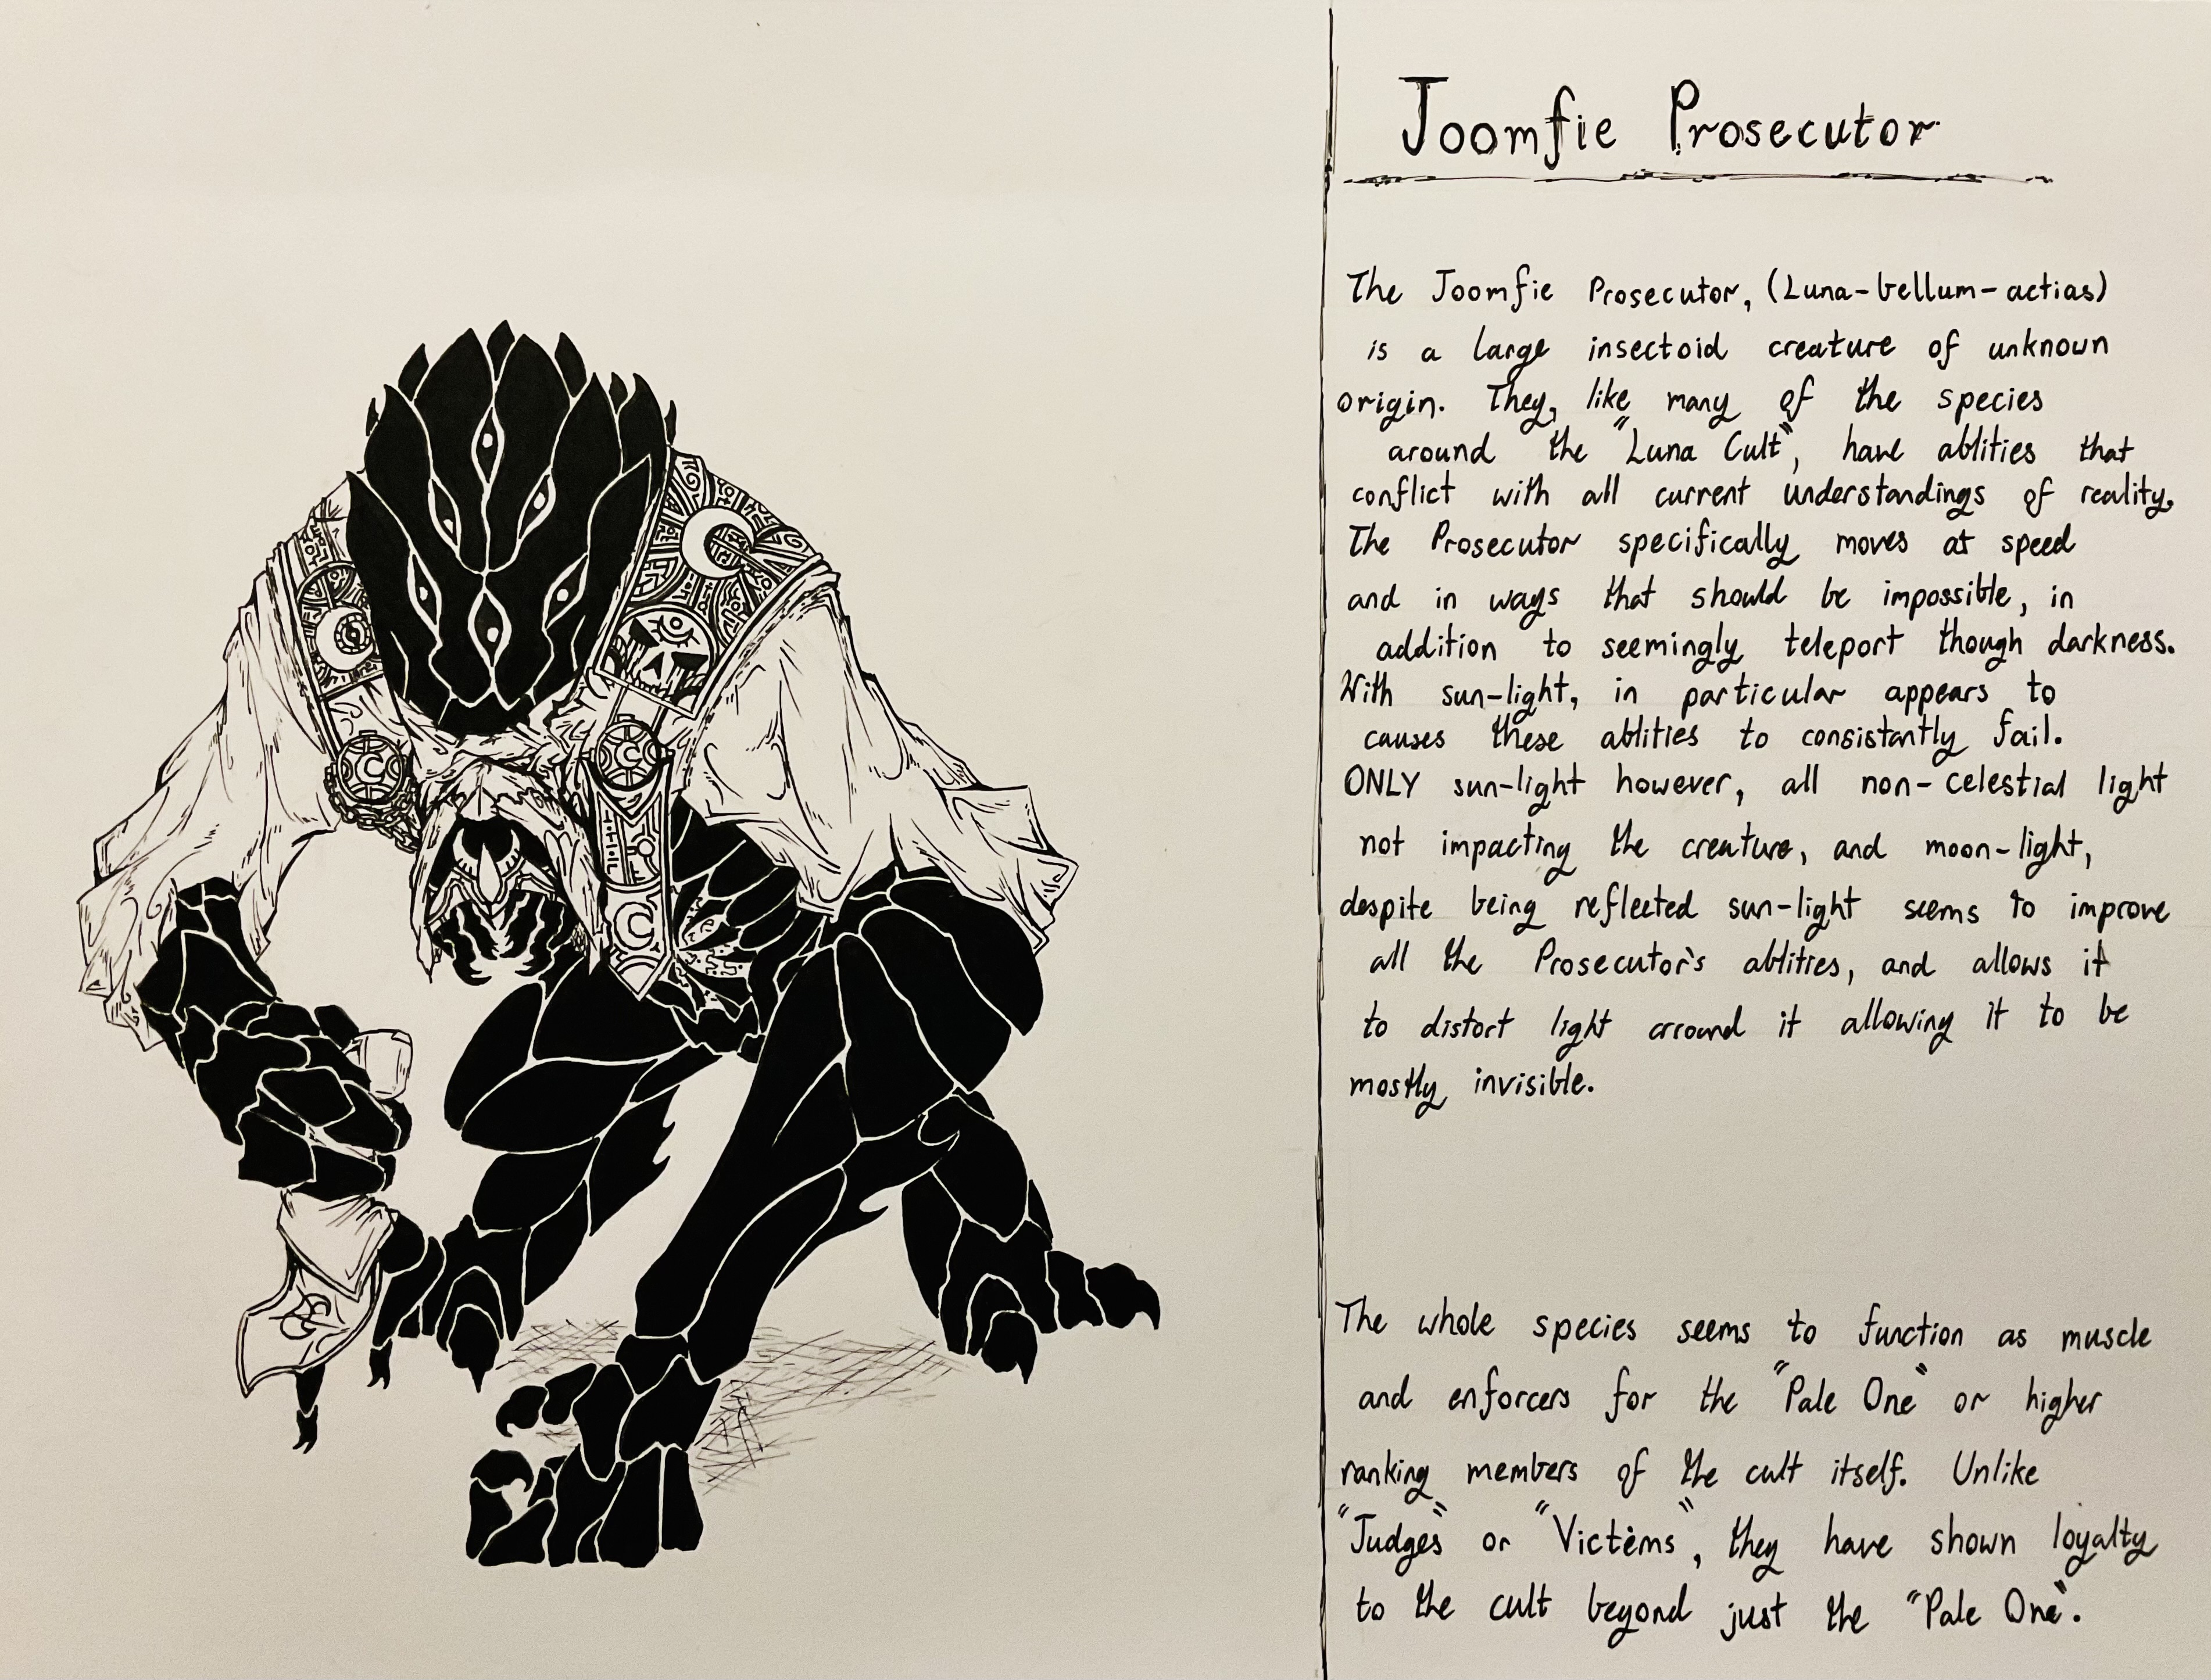 Joomfie Prosecutor
The Joomfie Prosecutor, (Luna-bellum-actias)
is a large insectoid creature of unknown
origin. They, like many of the species
around the "Luna Cult", have ablities that
conflict with all current understandings of reality.
The Prosecutor specifically moves at speed
and in ways that should be impossible, in
addition to seemingly teleport though darkness.
With sun-light, in particular appears to
causes these ablities to consistantly fail.
ONLY sun-light however, all non-celestial light
not impacting the creature, and moon-light,
despite being reflected sun-light seems to improve
all the Prosecutor's ablities, and allows it
to distort light arround it allowing it to be
mostly invisible.
The whole species seems to function as muscle
and enforcers for the "Pale One" or higher
ranking members of the cult itself. Unlike
"Judges" or "Victems", they have shown loyalty
to the cult beyond just the "Pale One".